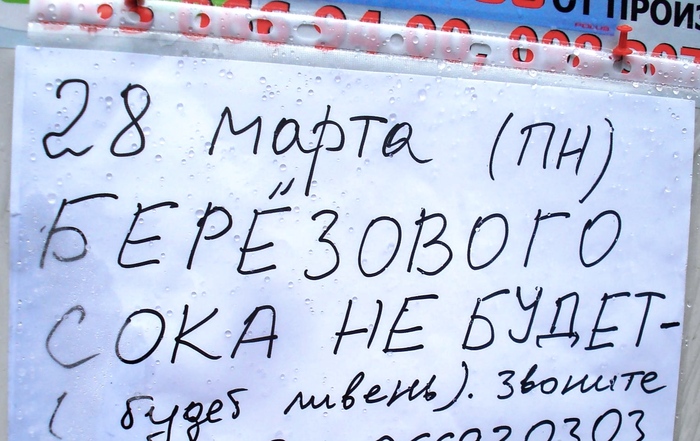 ОТ ПРОИЗ
28 марта (ПН)
БЕРЁЗОВОГО
СОКА НЕ БУДЕТ-
( будет ливень). Звоните